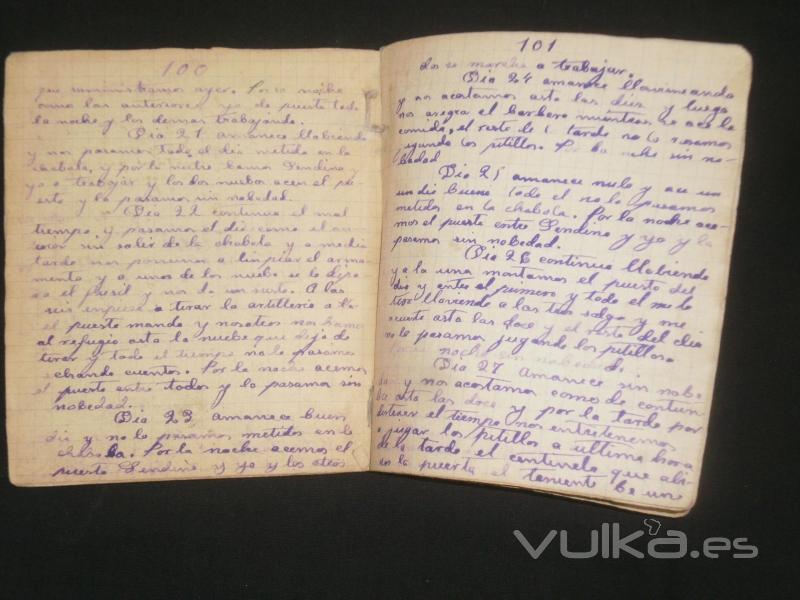 100
que suministramos ayer. Por la noche
como las anteriores yo de puerto toda
la noche y los demas trabajando.
Dia 21 amanece llobiendo
y nos pasamos todo el dia metido en la
chabola, y por la noche bamos Sendino y
yo a trabajar y los dos nuebos acen el pu
erto y lo pasamos sin nobedad.
Dia 22 continua el mal
tiempo y pasamos el dia como el an
erior sin salir de la chabola y a media
tarde nos ponemos a limpiar el arma
mento y a unos de los nuebo se le dispa
ra el fusil y nos da un susto. A las
seis empieza a tirar la artilleria a
el puesto mando y nosotros nos bamos
al refugio asta la nuebe que dejo de
tirar y todo el tiempo no lo pasamos
echando cuentos. Por la noche acemos
el puerto entre todos y lo pasamos sin
nobedad.
Dia 23 amanece buen
dia y no lo pasamos metidos en la
chabola. Por la noche acemos el
puerto Sendino y yo y los otros
101
dos se marchan a trabajar.
Dia 24 amanece llobineando
y nos acostamos asta las diez y luego
nos asegra el barbero mientras se ace la
comida, el resto de la tarde no lo pasamos
jugando los pitillos. Por la noche sin no-
bedad
Dia 25 amanece nulo y ace un
un dia bueno todo el no lo pasamos
metidos en la chabola. Por la noche ace-
mos el puerto entre Sendino y yo y la
pasamos sin nobedad.
Dia 26 continua llobiendo
y a la una montamos el puerto del
dia y entro el primero y todo el me lo
tiro lloviendo a las tres salgo y me
acuesto asta las doce y el resto del dia
no lo pasamos jugando los pitillos.
noche sin nobedad.
Dia 27 Amanece sin nobe
dad y nos acostamos como de contun
ba asta las doce y por la tarde por
entretener el tiempo nos entretenemos
a jugar los pitillos a ultima hora
de la tarde el centinela que abi-
en la puerta el teniente be une